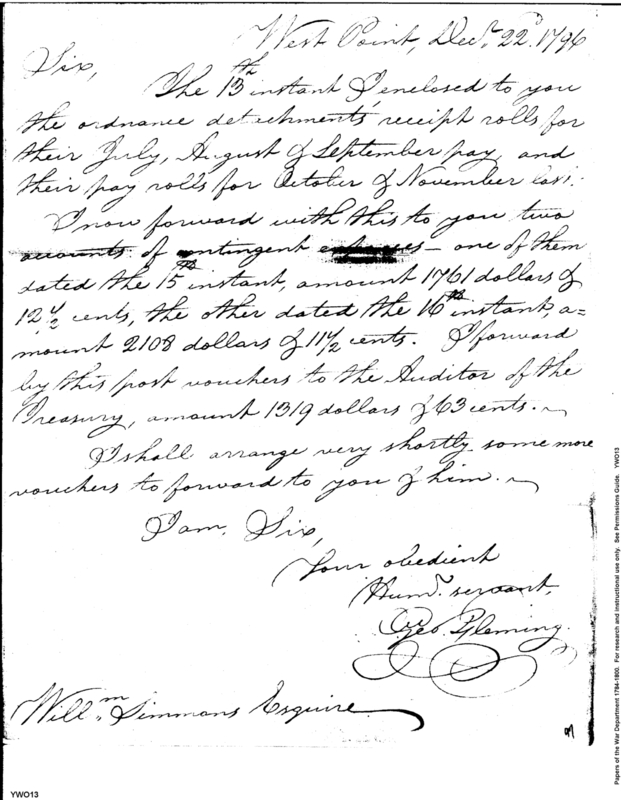 West Point, Decr. 22d. 1796
Sir,
The 13th instant I enclosed to you
the ordnance detachments' receipt rolls for
their July, August & September pay, and
their pay rolls for October & November last.
I now forward with this to you two
accounts of contingent expenses - one of them
dated the 15th instant, amount 1761 dollars &
12 1/2 cents, the other dated the 16th instant, a=
mount 2108 dollars & 11 1/2 cents. I forward
by this post vouchers to the Auditor of the
Treasury, amount 1319 dollars & 63 cents.
I shall arrange very shortly some more
vouchers to forward to you & him.
I am, Sir,
Your obedient
Humr. servant,
Geo. Fleming.
Willm. Simmons Esquire
Papers of the War Department 1784-1800. For research and instructional use only. See Permissions Guide. YWO13
YWO13